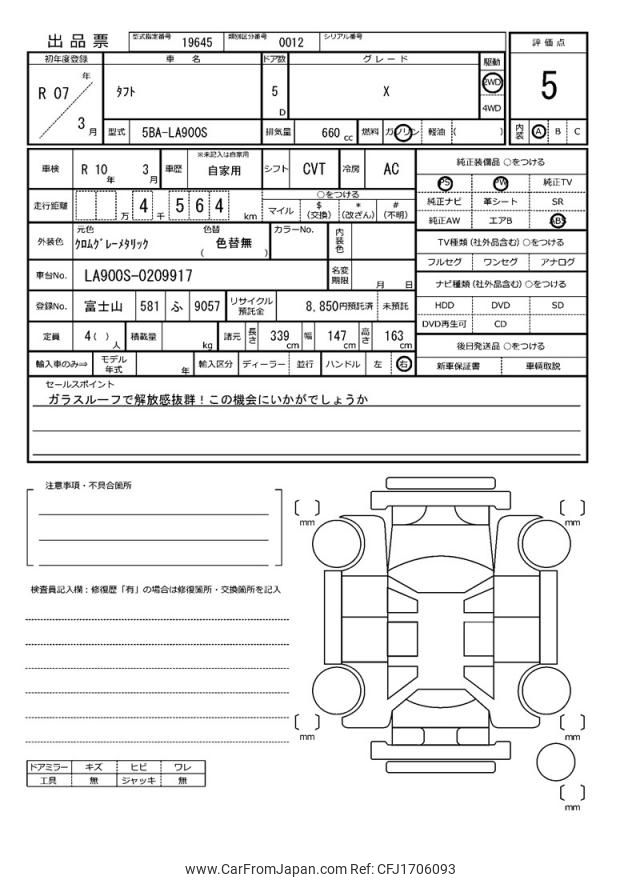 出品票 型式指定番号 19645 類別区分番号 0012 シリアル番号
初年度登録 車名 ドア数 グレード 駆動 評価点
R 07 年 3 月 ﾀﾌﾄ 5 D X 2WD 4WD 5
型式 5BA-LA900S 排気量 660 cc 燃料 ガソリン 軽油 ( ) 内装 A B C
車検 R 10 年 3 月 車歴 ※未記入は自家用 自家用 シフト CVT 冷房 AC
走行距離 万 4 千 5 6 4 km ○をつける
マイル $ (交換) * (改ざん) # (不明)
外装色 元色 ｸﾛﾑｸﾞﾚｰﾒﾀﾘｯｸ 色替 ( 色替無 ) カラーNo. 内装色
車台No. LA900S-0209917 名変期限 月 日
登録No. 富士山 581 ふ 9057 リサイクル預託金 8,850円預託済 未預託
定員 4( ) 人 積載量 kg 諸元 長さ 339 cm 幅 147 cm 高さ 163 cm
輸入車のみ⇒ モデル年式 年 輸入区分 ディーラー 並行 ハンドル 左 右
純正装備品 ○をつける
PS PW 純正TV
純正ナビ 革シート SR
純正AW エアB ABS
TV種類 (社外品含む) ○をつける
フルセグ ワンセグ アナログ
ナビ種類 (社外品含む) ○をつける
HDD DVD SD
DVD再生可 CD
後日発送品 ○をつける
新車保証書 車輌取説
セールスポイント
ガラスルーフで解放感抜群！この機会にいかがでしょうか
注意事項・不具合箇所
検査員記入欄：修復歴「有」の場合は修復箇所・交換箇所を記入
[ ] mm
[ ] mm
[ ] mm
[ ] mm
[ ] mm
ドアミラー キズ ヒビ ワレ
工具 無 ジャッキ 無
www.CarFromJapan.com Ref: CFJ1706093